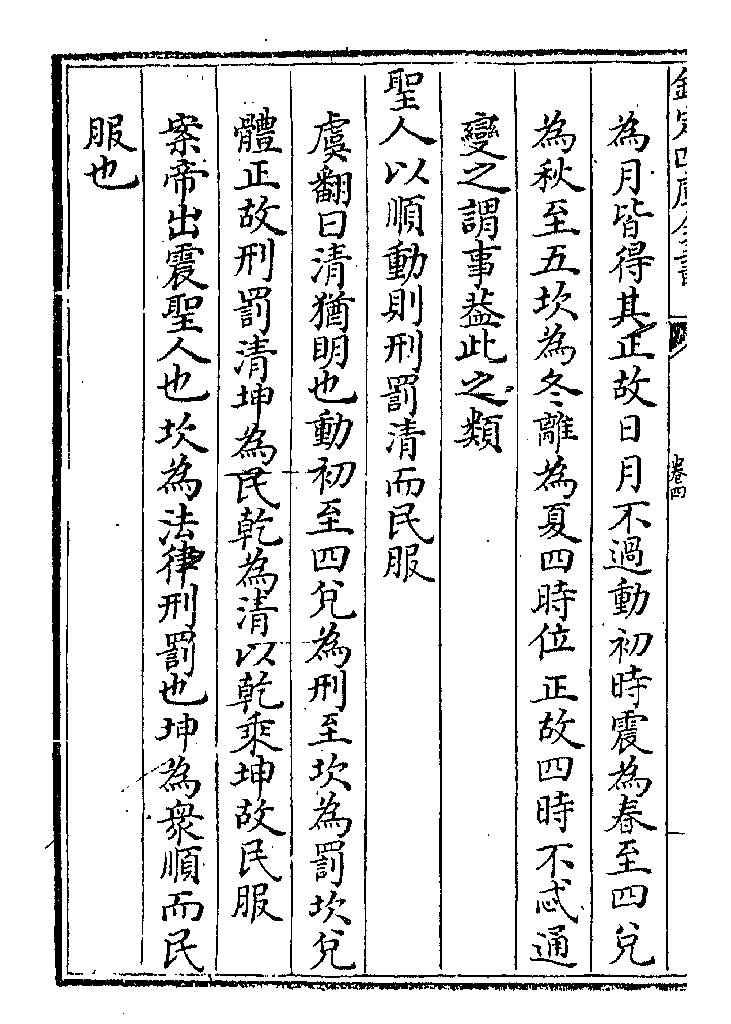 欽定四庫全書
卷四
為月皆得其正故日月不過動初時震為春至四兌
為秋至五坎為冬離為夏四時位正故四時不忒通
變之謂事葢此之類
聖人以順動則刑罰清而民服
虞翻曰清猶明也動初至四兌為刑至坎為罰坎兌
體正故刑罰清坤為民乾為清以乾乘坤故民服
案帝出震聖人也坎為法律刑罰也坤為衆順而民
服也